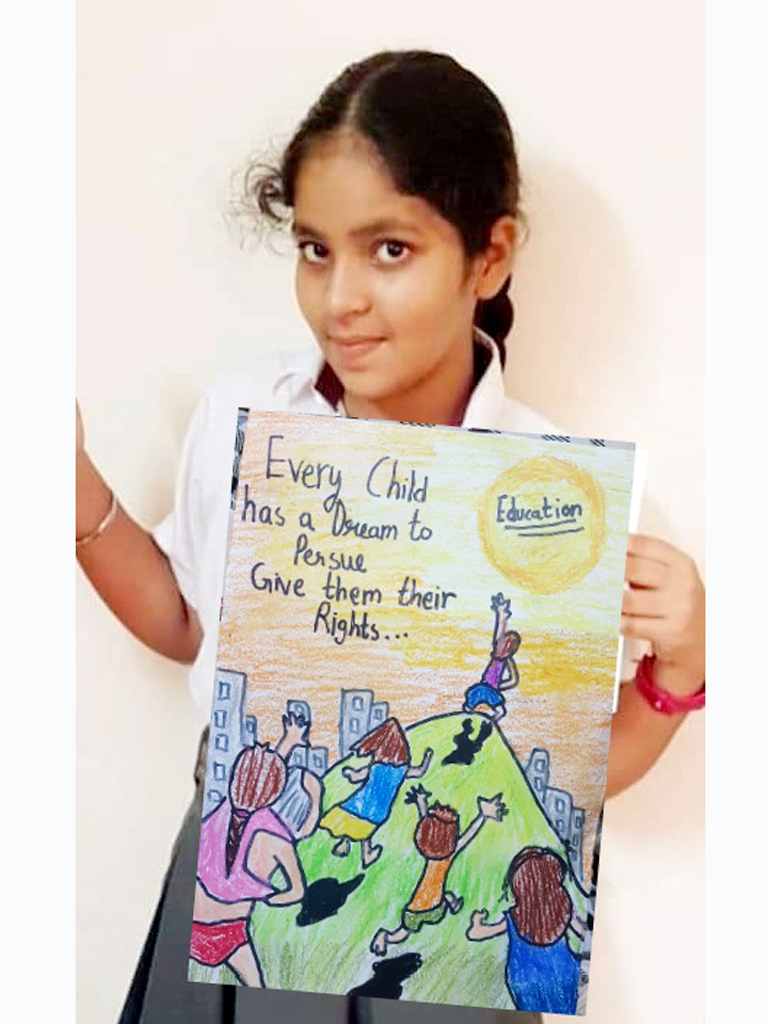 Every Child
has a Dream to
Persue
Give them their
Rights...
Education